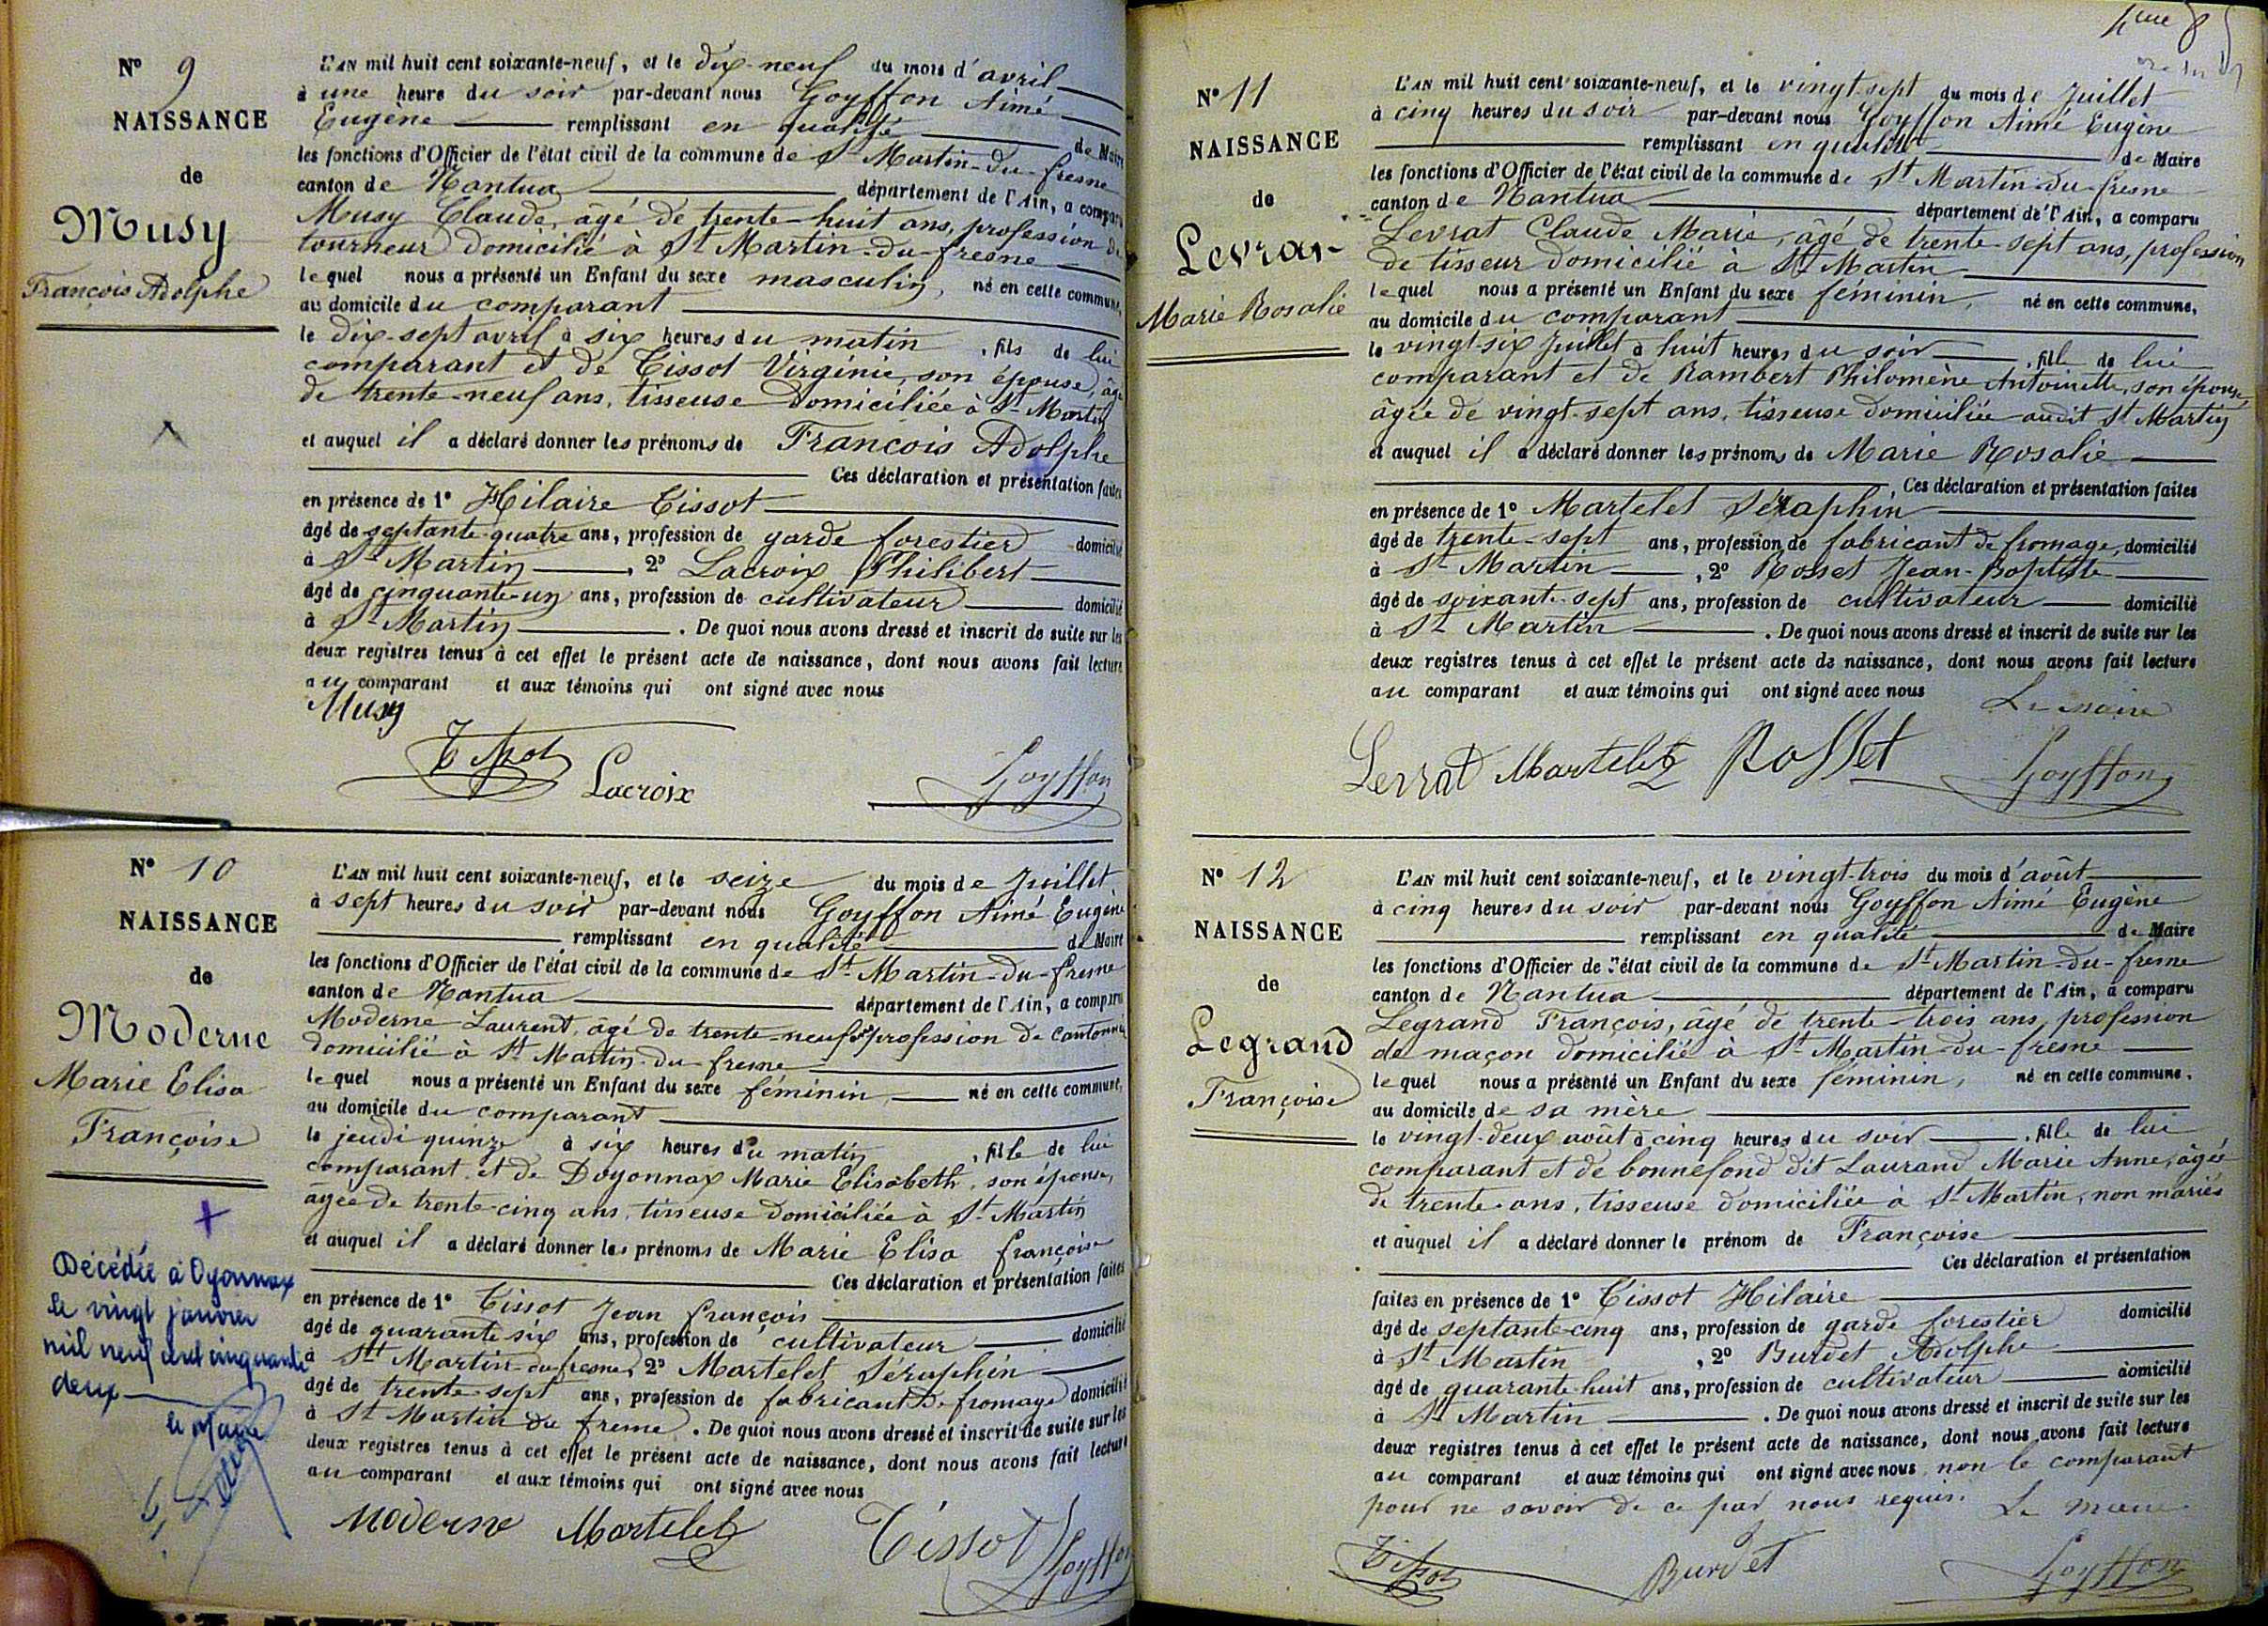 N° 9
NAISSANCE
de
Musy
François Adolphe
L'AN mil huit cent soixante-neuf, et le dix-neuf du mois d'avril
à une heure du soir par-devant nous Goyffon Aimé
Eugène remplissant en qualité de Maire
les fonctions d'Officier de l'état civil de la commune de St Martin-du-fresne
canton de Nantua département de l'Ain, a comparu
Musy Claude, âgé de trente-huit ans, profession de
tourneur domicilié à St Martin-du-fresne
lequel nous a présenté un Enfant du sexe masculin, né en cette commune,
au domicile du comparant
le dix-sept avril à six heures du matin, fils de lui
comparant et de Tissot Virginie, son épouse, âgée
de trente-neuf ans, tisseuse domiciliée à St Martin
et auquel il a déclaré donner les prénoms de François Adolphe
Ces déclaration et présentation faites
en présence de 1° Hilaire Tissot
âgé de septante-quatre ans, profession de garde forestier domicilié
à St Martin, 2° Lacroix Philibert
âgé de cinquante-un ans, profession de cultivateur domicilié
à St Martin. De quoi nous avons dressé et inscrit de suite sur les
deux registres tenus à cet effet le présent acte de naissance, dont nous avons fait lecture
au comparant et aux témoins qui ont signé avec nous
Musy
Tissot
Lacroix
Goyffon
N° 10
NAISSANCE
de
Moderne
Marie Elisa
Françoise
Décédée à Oyonnax
le vingt janvier
mil neuf cent cinquante
deux
le Maire
L'AN mil huit cent soixante-neuf, et le seize du mois de Juillet
à sept heures du soir par-devant nous Goyffon Aimé Eugène
remplissant en qualité de Maire
les fonctions d'Officier de l'état civil de la commune de St Martin-du-fresne
canton de Nantua département de l'Ain, a comparu
Moderne Laurent, âgé de trente-neuf ans profession de cantonnier
domicilié à St Martin-du-fresne
lequel nous a présenté un Enfant du sexe féminin, né en cette commune,
au domicile du comparant
le jeudi quinze à six heures du matin, fille de lui
comparant et de Doyonnax Marie Elisabeth, son épouse,
âgée de trente-cinq ans, tisseuse domiciliée à St Martin
et auquel il a déclaré donner les prénoms de Marie Elisa françoise
Ces déclaration et présentation faites
en présence de 1° Tissot Jean françois
âgé de quarante six ans, profession de cultivateur domicilié
à St Martin-du-fresne, 2° Martelet Séraphin
âgé de trente-sept ans, profession de fabricant de fromage domicilié
à St Martin du fresne. De quoi nous avons dressé et inscrit de suite sur les
deux registres tenus à cet effet le présent acte de naissance, dont nous avons fait lecture
au comparant et aux témoins qui ont signé avec nous
Moderne Martelet
Tissot
Goyffon
4me
N° 11
NAISSANCE
de
Levrat
Marie Rosalie
L'AN mil huit cent soixante-neuf, et le vingt-sept du mois de Juillet
à cinq heures du soir par-devant nous Goyffon Aimé Eugène
remplissant en qualité de Maire
les fonctions d'Officier de l'état civil de la commune de St Martin-du-fresne
canton de Nantua département de l'Ain, a comparu
Levrat Claude Marie, âgé de trente-sept ans, profession
de tisseur domicilié à St Martin
lequel nous a présenté un Enfant du sexe féminin, né en cette commune,
au domicile du comparant
le vingt-six Juillet à huit heures du soir, fille de lui
comparant et de Rambert Philomène Antoinette, son épouse,
âgée de vingt-sept ans, tisseuse domiciliée audit St Martin
et auquel il a déclaré donner les prénoms de Marie Rosalie
Ces déclaration et présentation faites
en présence de 1° Martelet Séraphin
âgé de trente-sept ans, profession de fabricant de fromage, domicilié
à St Martin, 2° Rosset Jean-Baptiste
âgé de soixante-sept ans, profession de cultivateur domicilié
à St Martin. De quoi nous avons dressé et inscrit de suite sur les
deux registres tenus à cet effet le présent acte de naissance, dont nous avons fait lecture
au comparant et aux témoins qui ont signé avec nous
Le maire
Levrat Martelet Rosset
Goyffon
N° 12
NAISSANCE
de
Legrand
Françoise
L'AN mil huit cent soixante-neuf, et le vingt-trois du mois d'août
à cinq heures du soir par-devant nous Goyffon Aimé Eugène
remplissant en qualité de Maire
les fonctions d'Officier de l'état civil de la commune de St Martin-du-fresne
canton de Nantua département de l'Ain, a comparu
Legrand François, âgé de trente-trois ans, profession
de maçon domicilié à St Martin-du-fresne
lequel nous a présenté un Enfant du sexe féminin, né en cette commune,
au domicile de sa mère
le vingt-deux août à cinq heures du soir, fille de lui
comparant et de bonnefond dit Laurand Marie Anne, âgée
de trente ans, tisseuse domiciliée à St Martin, non mariés
et auquel il a déclaré donner le prénom de Françoise
Ces déclaration et présentation
faites en présence de 1° Tissot Hilaire
âgé de septante-cinq ans, profession de garde forestier domicilié
à St Martin, 2° Burdet Adolphe
âgé de quarante-huit ans, profession de cultivateur domicilié
à St Martin. De quoi nous avons dressé et inscrit de suite sur les
deux registres tenus à cet effet le présent acte de naissance, dont nous avons fait lecture
au comparant et aux témoins qui ont signé avec nous non le comparant
pour ne savoir de ce par nous requis.
Le maire
Tissot
Burdet
Goyffon